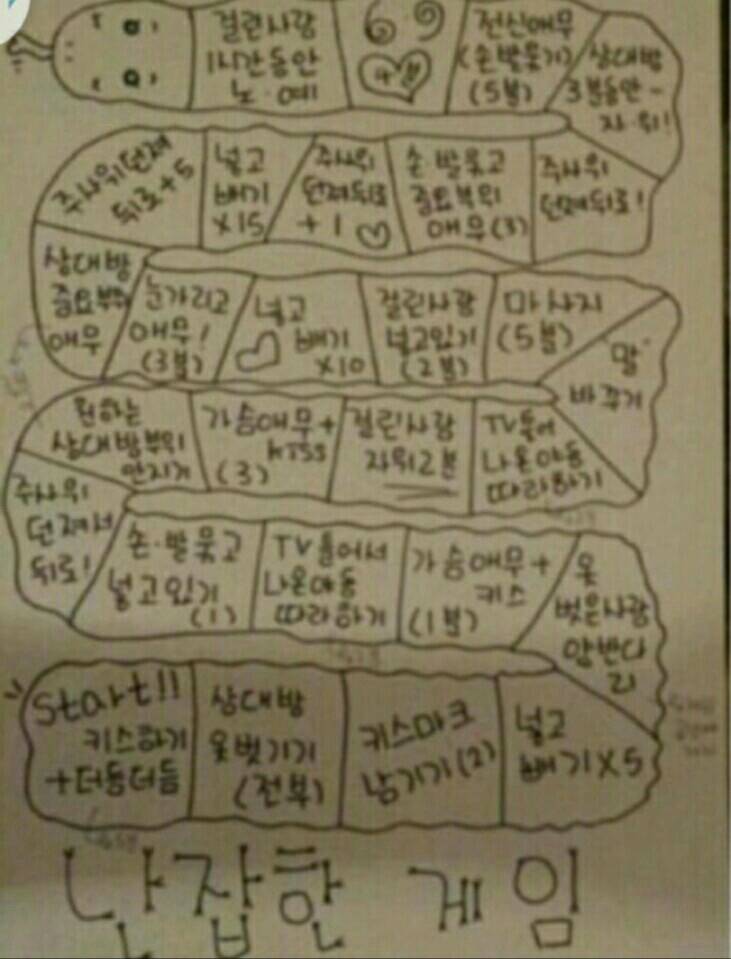 걸린사람
1시간동안
노·예
6·9
전신애무
(손발묶기)
(5분)
상대방
3분동안~
자·위!
주사위던져
뒤로+5
넣고
빼기
X15
주사위
던져뒤로
+1
손·발묶고
중요부위
애무(3)
주사위
던져뒤로!
상대방
중요부위
애무
눈가리고
애무!
(3분)
넣고
빼기
X10
걸린사람
넣고있기
(2분)
마사지
(5분)
"말"
바꾸기
원하는
상대방부위
만지기
가슴애무+
kiss
(3)
걸린사람
자위2분
TV틀어
나온야동
따라하기
주사위
던져서
뒤로!
손·발묶고
넣고있기
(1)
TV틀어서
나온야동
따라하기
가슴애무+
키스
(1분)
옷
벗은사람
start!!
키스하기
+더듬더듬
상대방
옷벗기기
(전부)
키스마크
남기기(2)
넣고
빼기X5
난잡한 게임